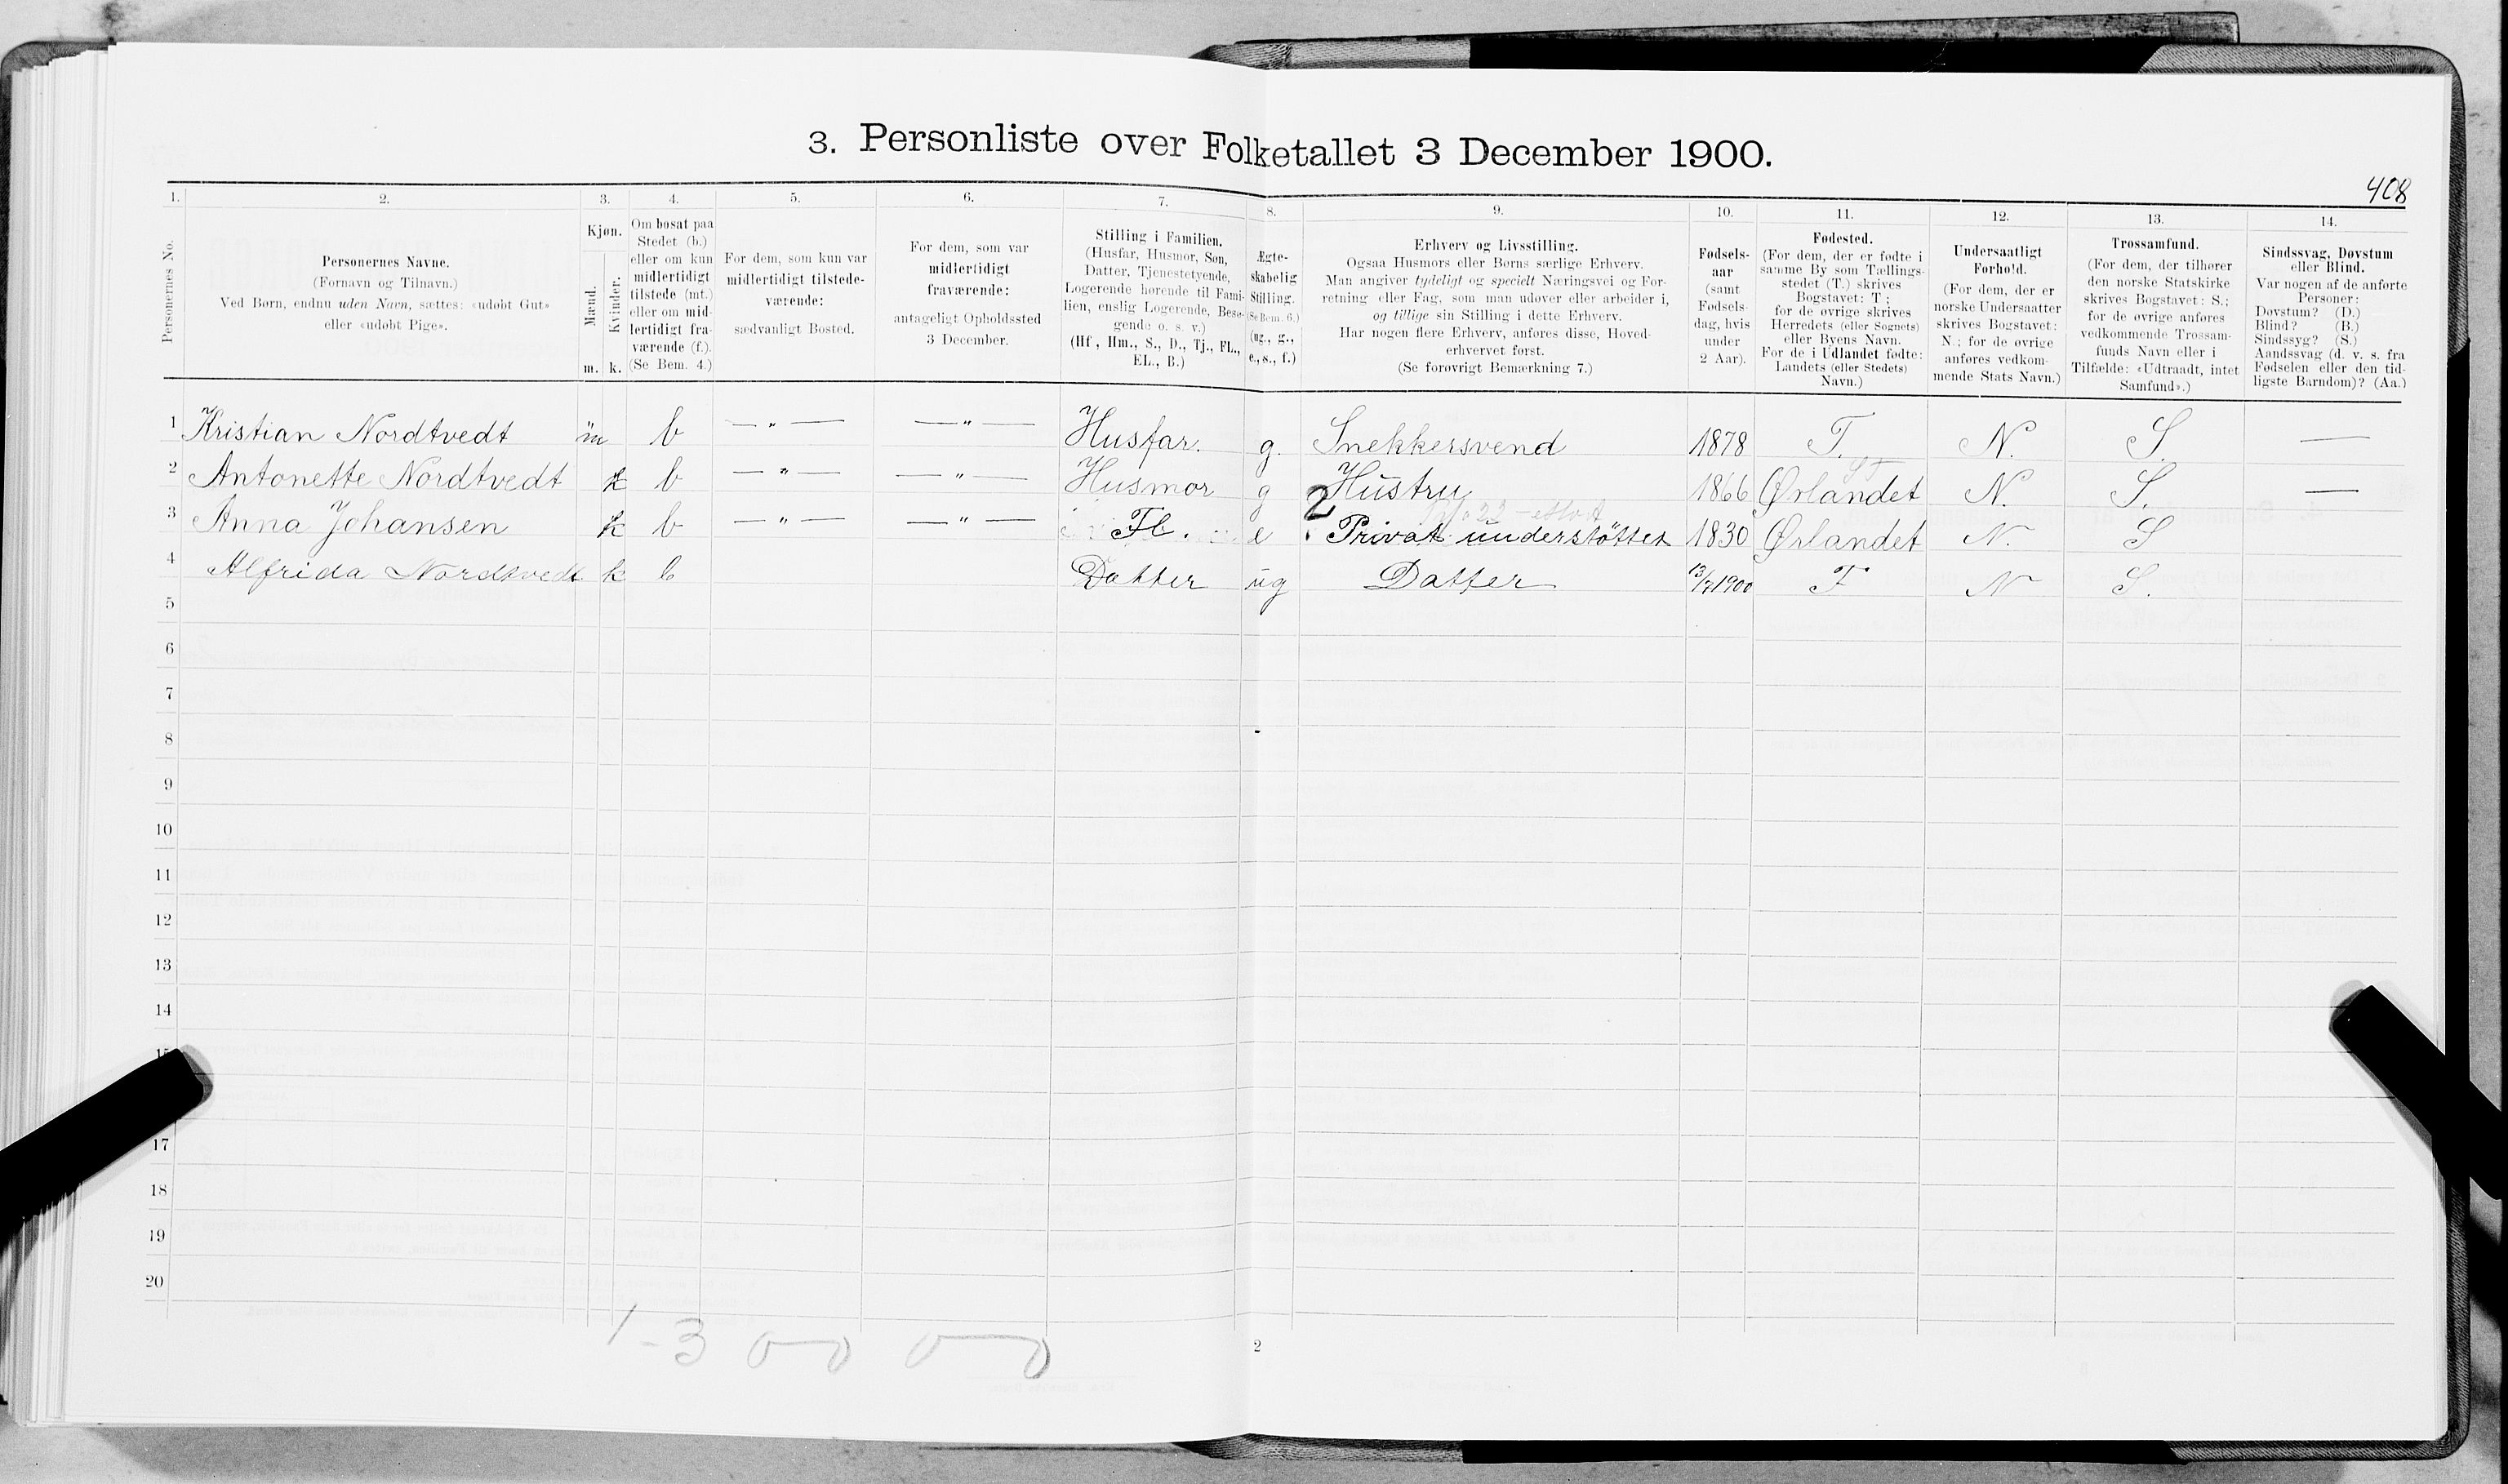 3. Personliste over Folketallet 3 December 1900.
408
1. 2. 3. 4. 5. 6. 7. 8. 9. 10. 11. 12. 13. 14.
Personernes No.
Personernes Navne.
(Fornavn og Tilnavn.)
Ved Børn, endnu uden Navn, sættes: «udøbt Gut»
eller «udøbt Pige».
Kjøn.
Mænd.
Kvinder.
m. k.
Om bosat paa
Stedet (b.)
eller om kun
midlertidigt
tilstede (mt.)
eller om mid-
lertidigt fra-
værende (f.).
(Se Bem. 4.)
For dem, som kun var
midlertidigt tilstede-
værende:
sædvanligt Bosted.
For dem, som var
midlertidigt
fraværende:
antageligt Opholdssted
3 December.
Stilling i Familien.
(Husfar, Husmor, Søn,
Datter, Tjenestetyende,
Logerende hørende til Fami-
lien, enslig Logerende, Besø-
gende o. s. v.)
(Hf., Hm., S., D., Tj., FL.,
EL., B.)
Ægte-
skabelig
Stilling.
(Se Bem. 6.)
(ug., g.,
e., s., f.)
Erhverv og Livsstilling.
Ogsaa Husmors eller Børns særlige Erhverv.
Man angiver tydeligt og specielt Næringsvei og For-
retning eller Fag, som man udøver eller arbeider i,
og tillige sin Stilling i dette Erhverv.
Har nogen flere Erhverv, anføres disse, Hoved-
erhvervet først.
(Se forøvrigt Bemærkning 7.)
Fødsels-
aar
(samt
Fødsels-
dag, hvis
under
2 Aar).
Fødested.
(For dem, der er fødte i
samme By som Tællings-
stedet (T.) skrives
Bogstavet: T;
for de øvrige skrives
Herredets (eller Sognets)
eller Byens Navn.
For de i Udlandet fødte:
Landets (eller Stedets)
Navn.)
Undersaatligt
Forhold.
(For dem, der er
norske Undersaatter
skrives Bogstavet:
N.; for de øvrige
anføres vedkom-
mende Stats Navn.)
Trossamfund.
(For dem, der tilhører
den norske Statskirke
skrives Bogstavet: S.;
for de øvrige anføres
vedkommende Trossam-
funds Navn eller i
Tilfælde: «Udtraadt, intet
Samfund».)
Sindssvag, Døvstum
eller Blind.
Var nogen af de anførte
Personer:
Døvstum? (D.)
Blind? (B.)
Sindssyg? (S.)
Aandssvag (d. v. s. fra
Fødselen eller den tid-
ligste Barndom)? (Aa.)
1 Kristian Nordtvedt m b —„— —„— Husfar. g. Snekkersvend 1878 T. N. S. —
2 Antonette Nordtvedt k b —„— —„— Husmor g Hustru 1866 Ørlandet N. S. —
3 Anna Johansen k b —„— —„— Fl. e 2 Privat understøttet 1830 Ørlandet N. S
4 Alfrida Nordtvedt k b Datter ug Datter 13/7 1900 T N S.
5
6
7
8
9
10
11
12
13
14
17
18
19
20
1-3 0—0 0—0
2